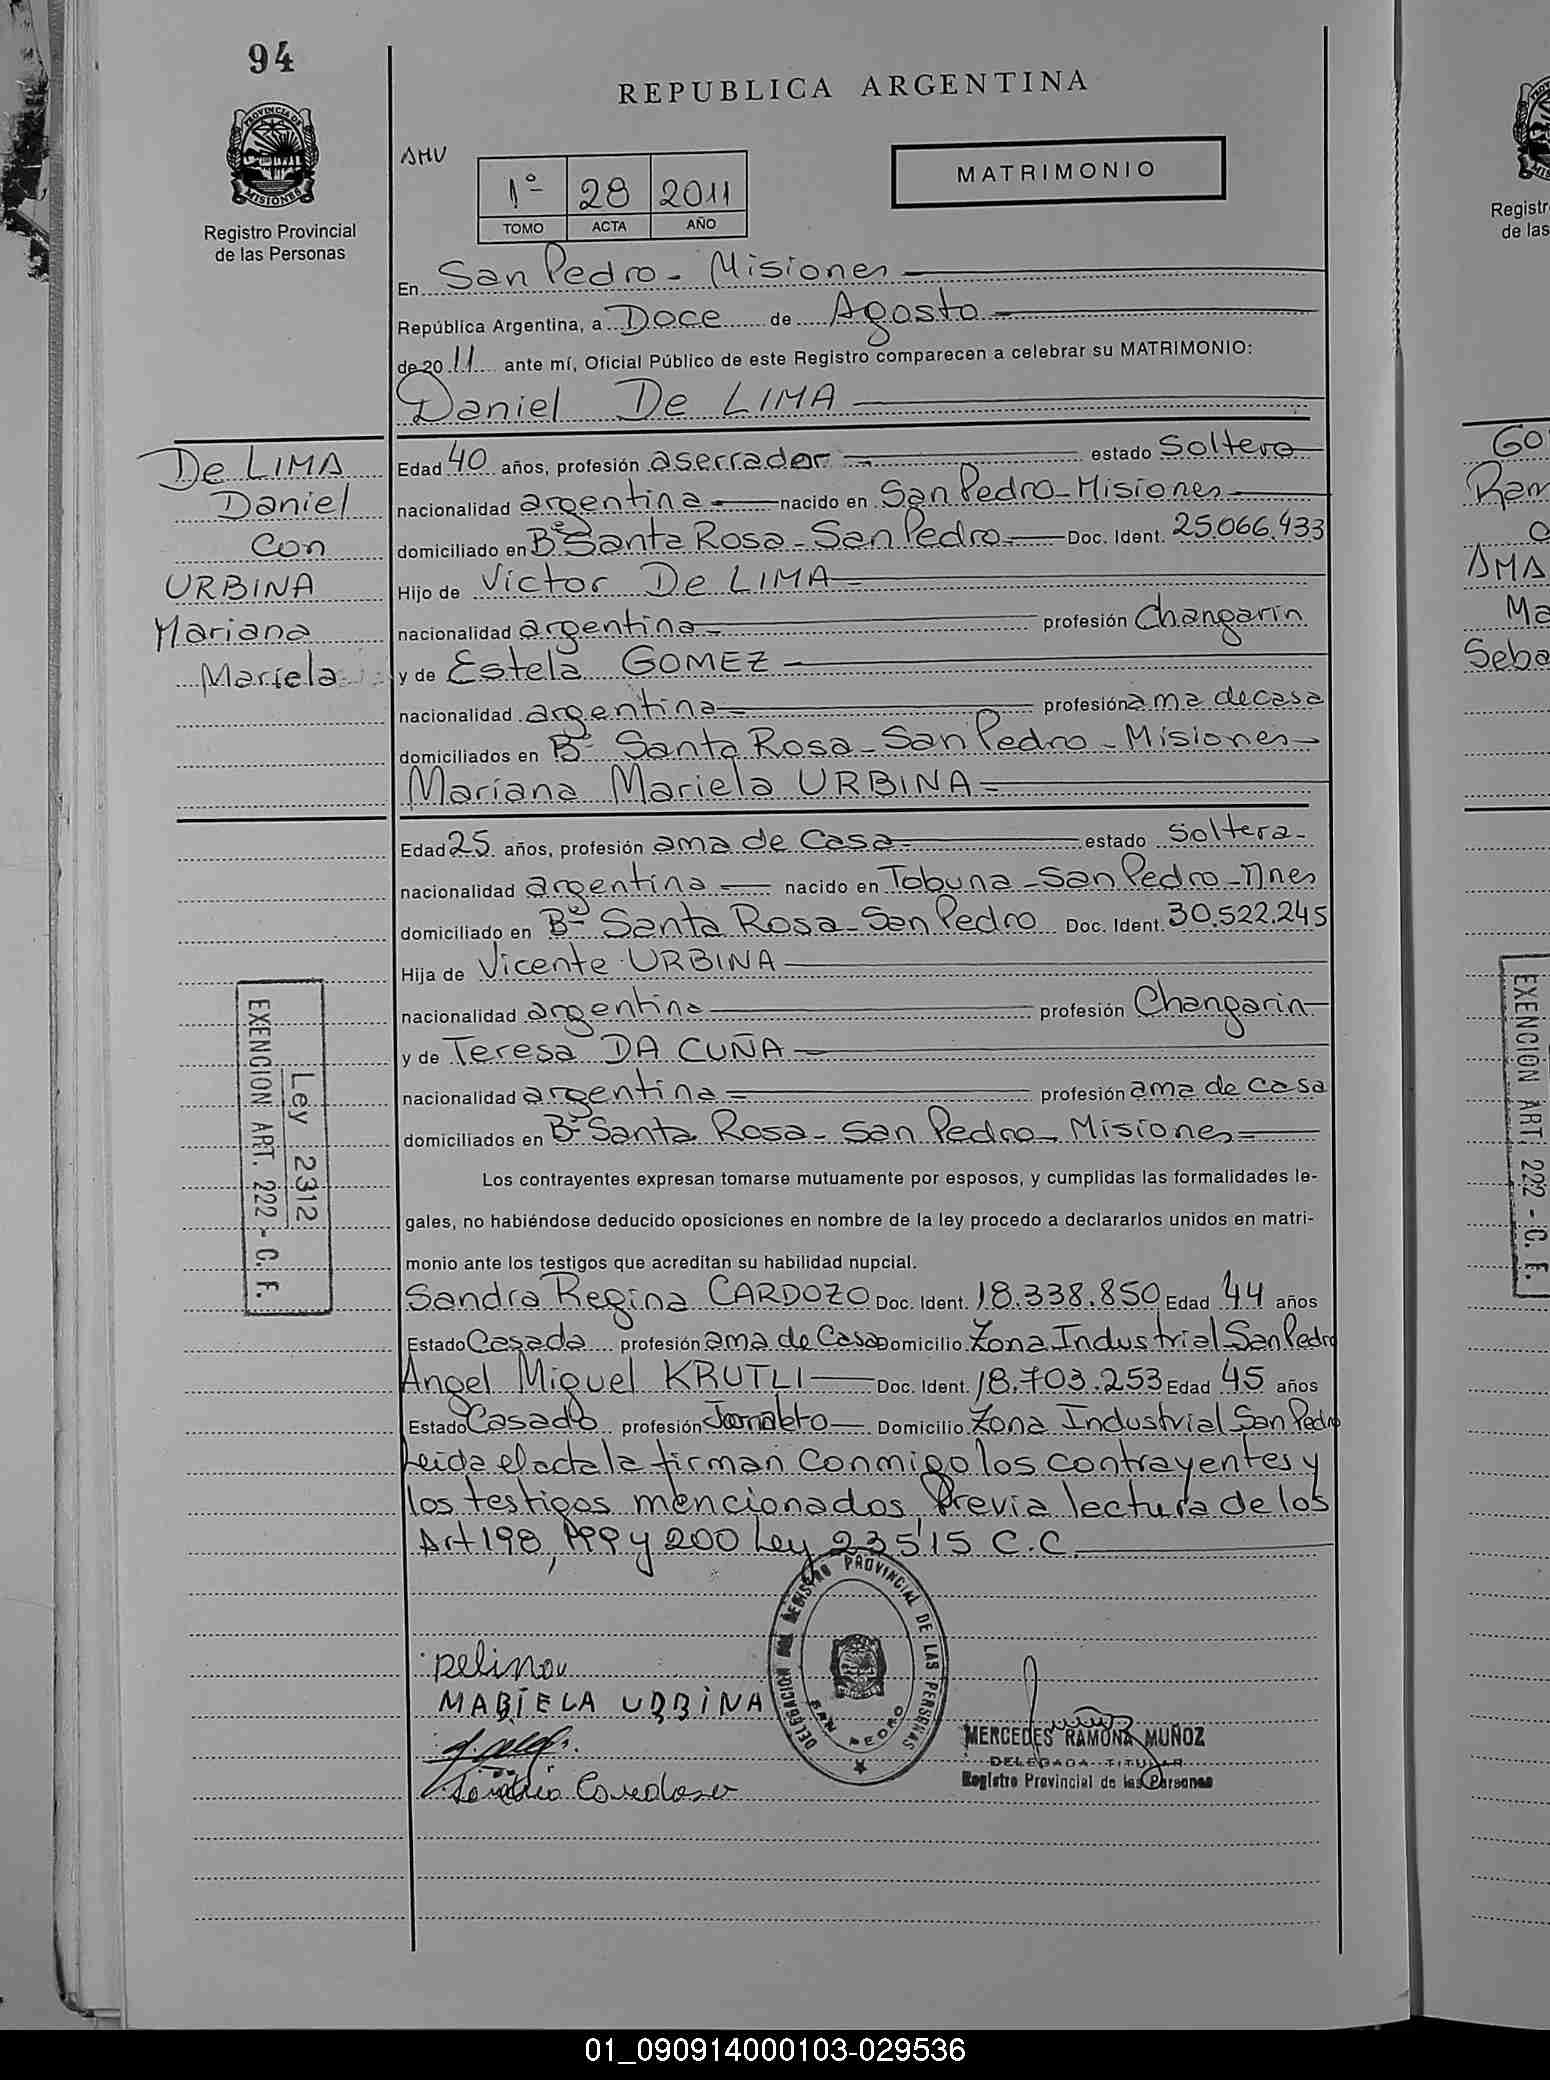 94
REPUBLICA ARGENTINA
PROVINCIA DE
MISIONES
Registro Provincial
de las Personas
AMV
1º 28 2011
TOMO ACTA AÑO
MATRIMONIO
En San Pedro - Misiones
República Argentina, a Doce de Agosto
de 20 11 ante mí, Oficial Público de este Registro comparecen a celebrar su MATRIMONIO:
Daniel De LIMA
De LIMA
Daniel
Con
URBINA
Mariana
Mariela
Edad 40 años, profesión aserrador estado Soltero
nacionalidad argentina nacido en San Pedro - Misiones
domiciliado en Bº Santa Rosa - San Pedro Doc. Ident. 25.066.433
Hijo de Victor De LIMA
nacionalidad argentina profesión Changarin
y de Estela GOMEZ
nacionalidad argentina profesión ama de casa
domiciliados en Bº Santa Rosa - San Pedro - Misiones
Mariana Mariela URBINA
Edad 25 años, profesión ama de casa estado Soltera
nacionalidad argentina nacido en Tobuna - San Pedro - Mnes
domiciliado en Bº Santa Rosa - San Pedro Doc. Ident. 30.522.245
Hija de Vicente URBINA
nacionalidad argentina profesión Changarin
y de Teresa DA CUÑA
nacionalidad argentina profesión ama de casa
domiciliados en Bº Santa Rosa - San Pedro - Misiones
Ley 2312
EXENCION ART. 222 - C. F.
Los contrayentes expresan tomarse mutuamente por esposos, y cumplidas las formalidades le-
gales, no habiéndose deducido oposiciones en nombre de la ley procedo a declararlos unidos en matri-
monio ante los testigos que acreditan su habilidad nupcial.
Sandra Regina CARDOZO Doc. Ident. 18.338.850 Edad 44 años
Estado Casada profesión ama de Casa Domicilio Zona Industrial San Pedro
Angel Miguel KRUTLI Doc. Ident. 18.703.253 Edad 45 años
Estado Casado profesión Domicilio Zona Industrial San Pedro
Leida el acta la firman conmigo los contrayentes y
los testigos mencionados, Previa lectura de los
Art 198, 199 y 200 Ley 23515 C.C.
MARIELA URBINA
DELEGACION DEL REGISTRO PROVINCIAL DE LAS PERSONAS
SAN PEDRO
MERCEDES RAMONA MUÑOZ
DELEGADA TITULAR
Registro Provincial de las Personas
Registr
de las
GO
Ram
AMA
Ma
Seba
EXENCION ART. 222 - C. F.
01_090914000103-029536